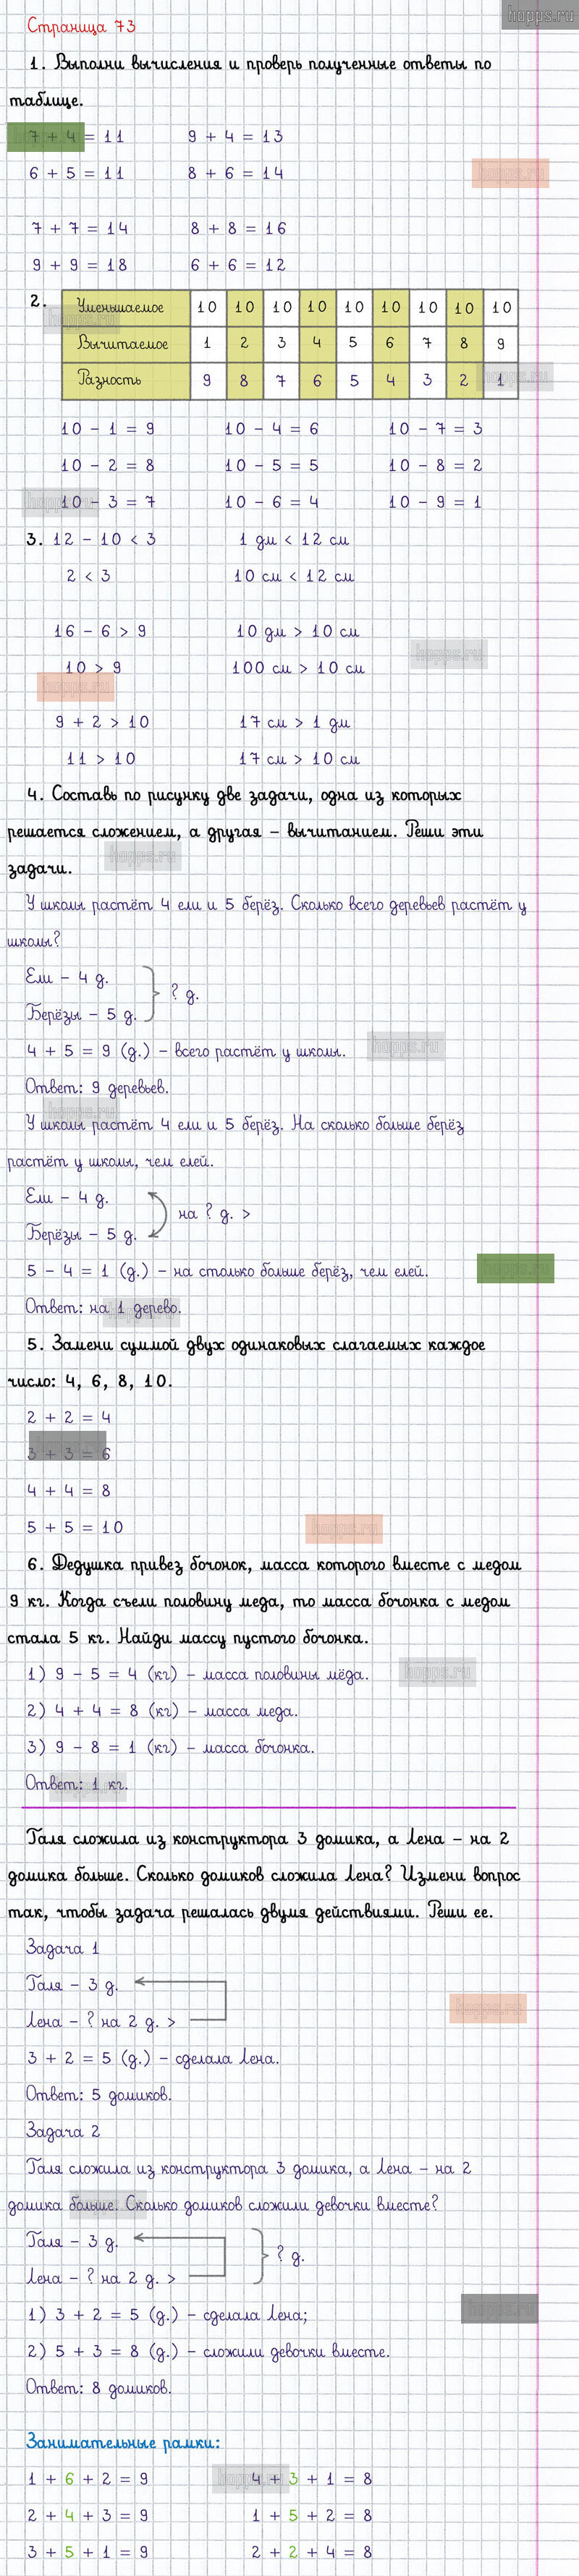 hopps.ru
Страница 73
1. Выполни вычисления и проверь полученные ответы по
таблице.
7 + 4 = 11 9 + 4 = 13
6 + 5 = 11 8 + 6 = 14
hopps.ru
7 + 7 = 14 8 + 8 = 16
9 + 9 = 18 6 + 6 = 12
2. Уменьшаемое 10 10 10 10 10 10 10 10 10
hopps.ru
Вычитаемое 1 2 3 4 5 6 7 8 9
Разность 9 8 7 6 5 4 3 2 1
hopps.ru
10 - 1 = 9 10 - 4 = 6 10 - 7 = 3
10 - 2 = 8 10 - 5 = 5 10 - 8 = 2
10 - 3 = 7 10 - 6 = 4 10 - 9 = 1
hopps.ru
3. 12 - 10 < 3 1 дм < 12 см
2 < 3 10 см < 12 см
16 - 6 > 9 10 дм > 10 см
hopps.ru
10 > 9 100 см > 10 см
hopps.ru
9 + 2 > 10 17 см > 1 дм
11 > 10 17 см > 10 см
4. Составь по рисунку две задачи, одна из которых
решается сложением, а другая – вычитанием. Реши эти
задачи.
hopps.ru
У школы растёт 4 ели и 5 берёз. Сколько всего деревьев растёт у
школы?
Ели – 4 д.
? д.
Берёзы – 5 д.
4 + 5 = 9 (д.) – всего растёт у школы.
hopps.ru
Ответ: 9 деревьев.
hopps.ru
У школы растёт 4 ели и 5 берёз. На сколько больше берёз
растёт у школы, чем елей.
Ели – 4 д.
на ? д. >
Берёзы – 5 д.
5 - 4 = 1 (д.) – на столько больше берёз, чем елей.
hopps.ru
Ответ: на 1 дерево.
hopps.ru
5. Замени суммой двух одинаковых слагаемых каждое
число: 4, 6, 8, 10.
2 + 2 = 4
3 + 3 = 6
4 + 4 = 8
5 + 5 = 10
hopps.ru
6. Дедушка привез бочонок, масса которого вместе с медом
9 кг. Когда съели половину меда, то масса бочонка с медом
стала 5 кг. Найди массу пустого бочонка.
1) 9 - 5 = 4 (кг) – масса половины мёда.
hopps.ru
2) 4 + 4 = 8 (кг) – масса меда.
3) 9 - 8 = 1 (кг) – масса бочонка.
Ответ: 1 кг.
hopps.ru
Галя сложила из конструктора 3 домика, а Лена – на 2
домика больше. Сколько домиков сложила Лена? Измени вопрос
так, чтобы задача решалась двумя действиями. Реши ее.
Задача 1
Галя – 3 д.
hopps.ru
Лена – ? на 2 д. >
3 + 2 = 5 (д.) – сделала Лена.
Ответ: 5 домиков.
Задача 2
Галя сложила из конструктора 3 домика, а Лена – на 2
домика больше. Сколько домиков сложили девочки вместе?
hopps.ru
Галя – 3 д.
? д.
Лена – ? на 2 д. >
hopps.ru
1) 3 + 2 = 5 (д.) – сделала Лена;
2) 5 + 3 = 8 (д.) – сложили девочки вместе.
Ответ: 8 домиков.
Занимательные рамки:
1 + 6 + 2 = 9 4 + 3 + 1 = 8
hopps.ru
2 + 4 + 3 = 9 1 + 5 + 2 = 8
3 + 5 + 1 = 9 2 + 2 + 4 = 8